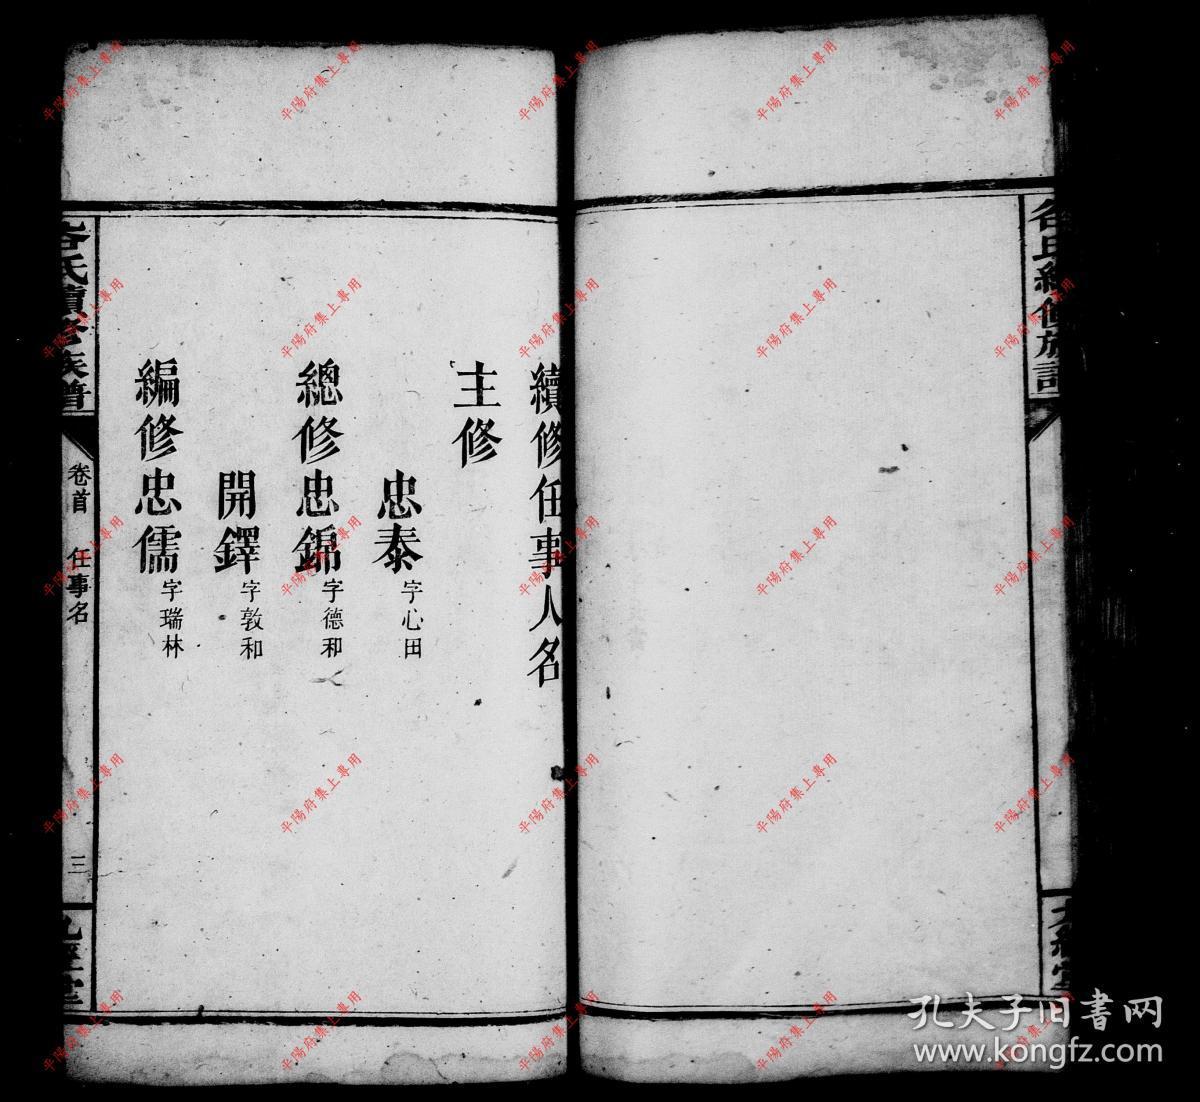 續修任事人名
主修
忠泰字心田
總修忠錦字德和
開鐸字敦和
編修忠儒字瑞林
谷氏續修族譜
卷首
任事名
三
九經堂
平陽府集上專用
孔夫子旧书网
www.kongfz.com